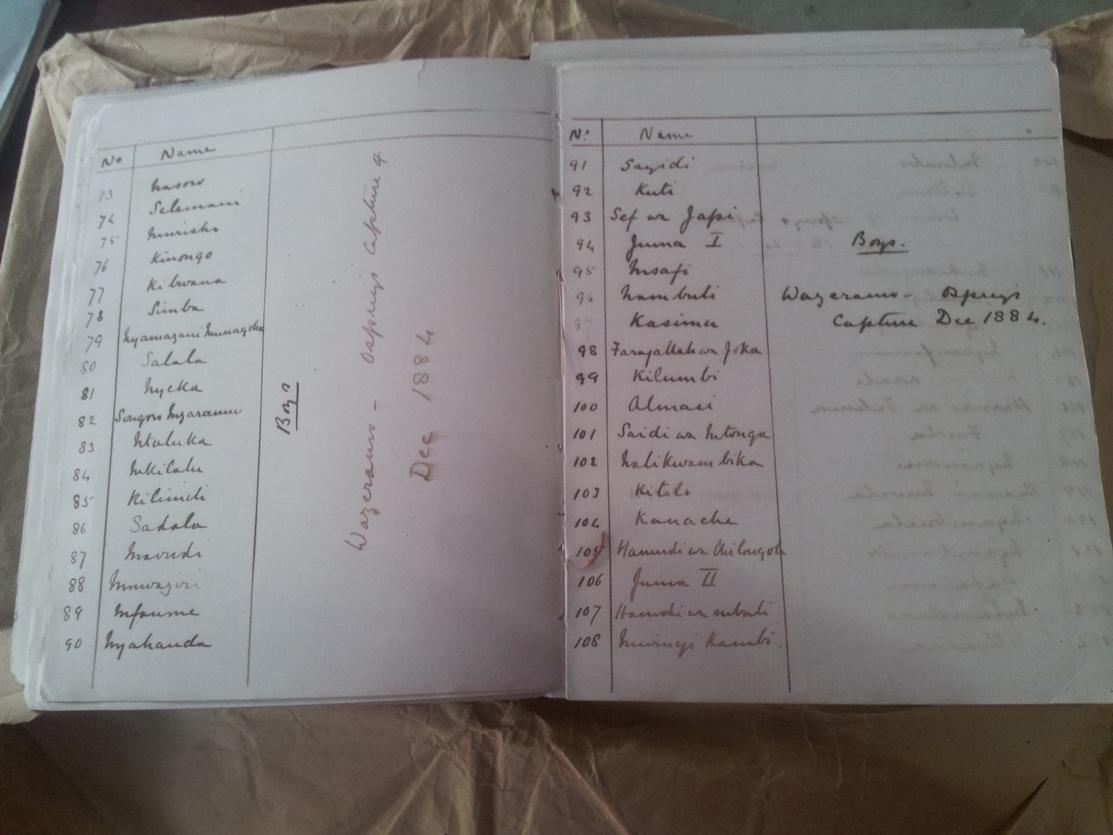 No Name
73 Nasoro
74 Selemani
75 Murisho
76 Kinongo
77 Kibwana
78 Simba
79 Nyamazani Munagoha
80 Salala
81 Nyeka
82 Songoro Mzaramu
83 Ntaluka
84 Mkilalu
85 Kilindi
86 Sadala
87 Mavudi
88 Mmwagiri
89 Mfaume
90 Nyahanda
Boys
Wazeramo - Ospreys Capture of
Dec 1884
No. Name
91 Sayidi
92 Kuti
93 Sef wa Japi
94 Juma I
95 Msafi
96 Nambuli
97 Kasimu
98 Farajallah wa Joka
99 Kilumbi
100 Almasi
101 Saidi wa Mtonga
102 Nalikwambika
103 Kitilo
104 Kanache
105 Hamudi wa Chilongola
106 Juma II
107 Hamodi wa mbuli
108 Mwinyi Kambi.
Boys.
Wazeramo - Ospreys
Capture Dec 1884.